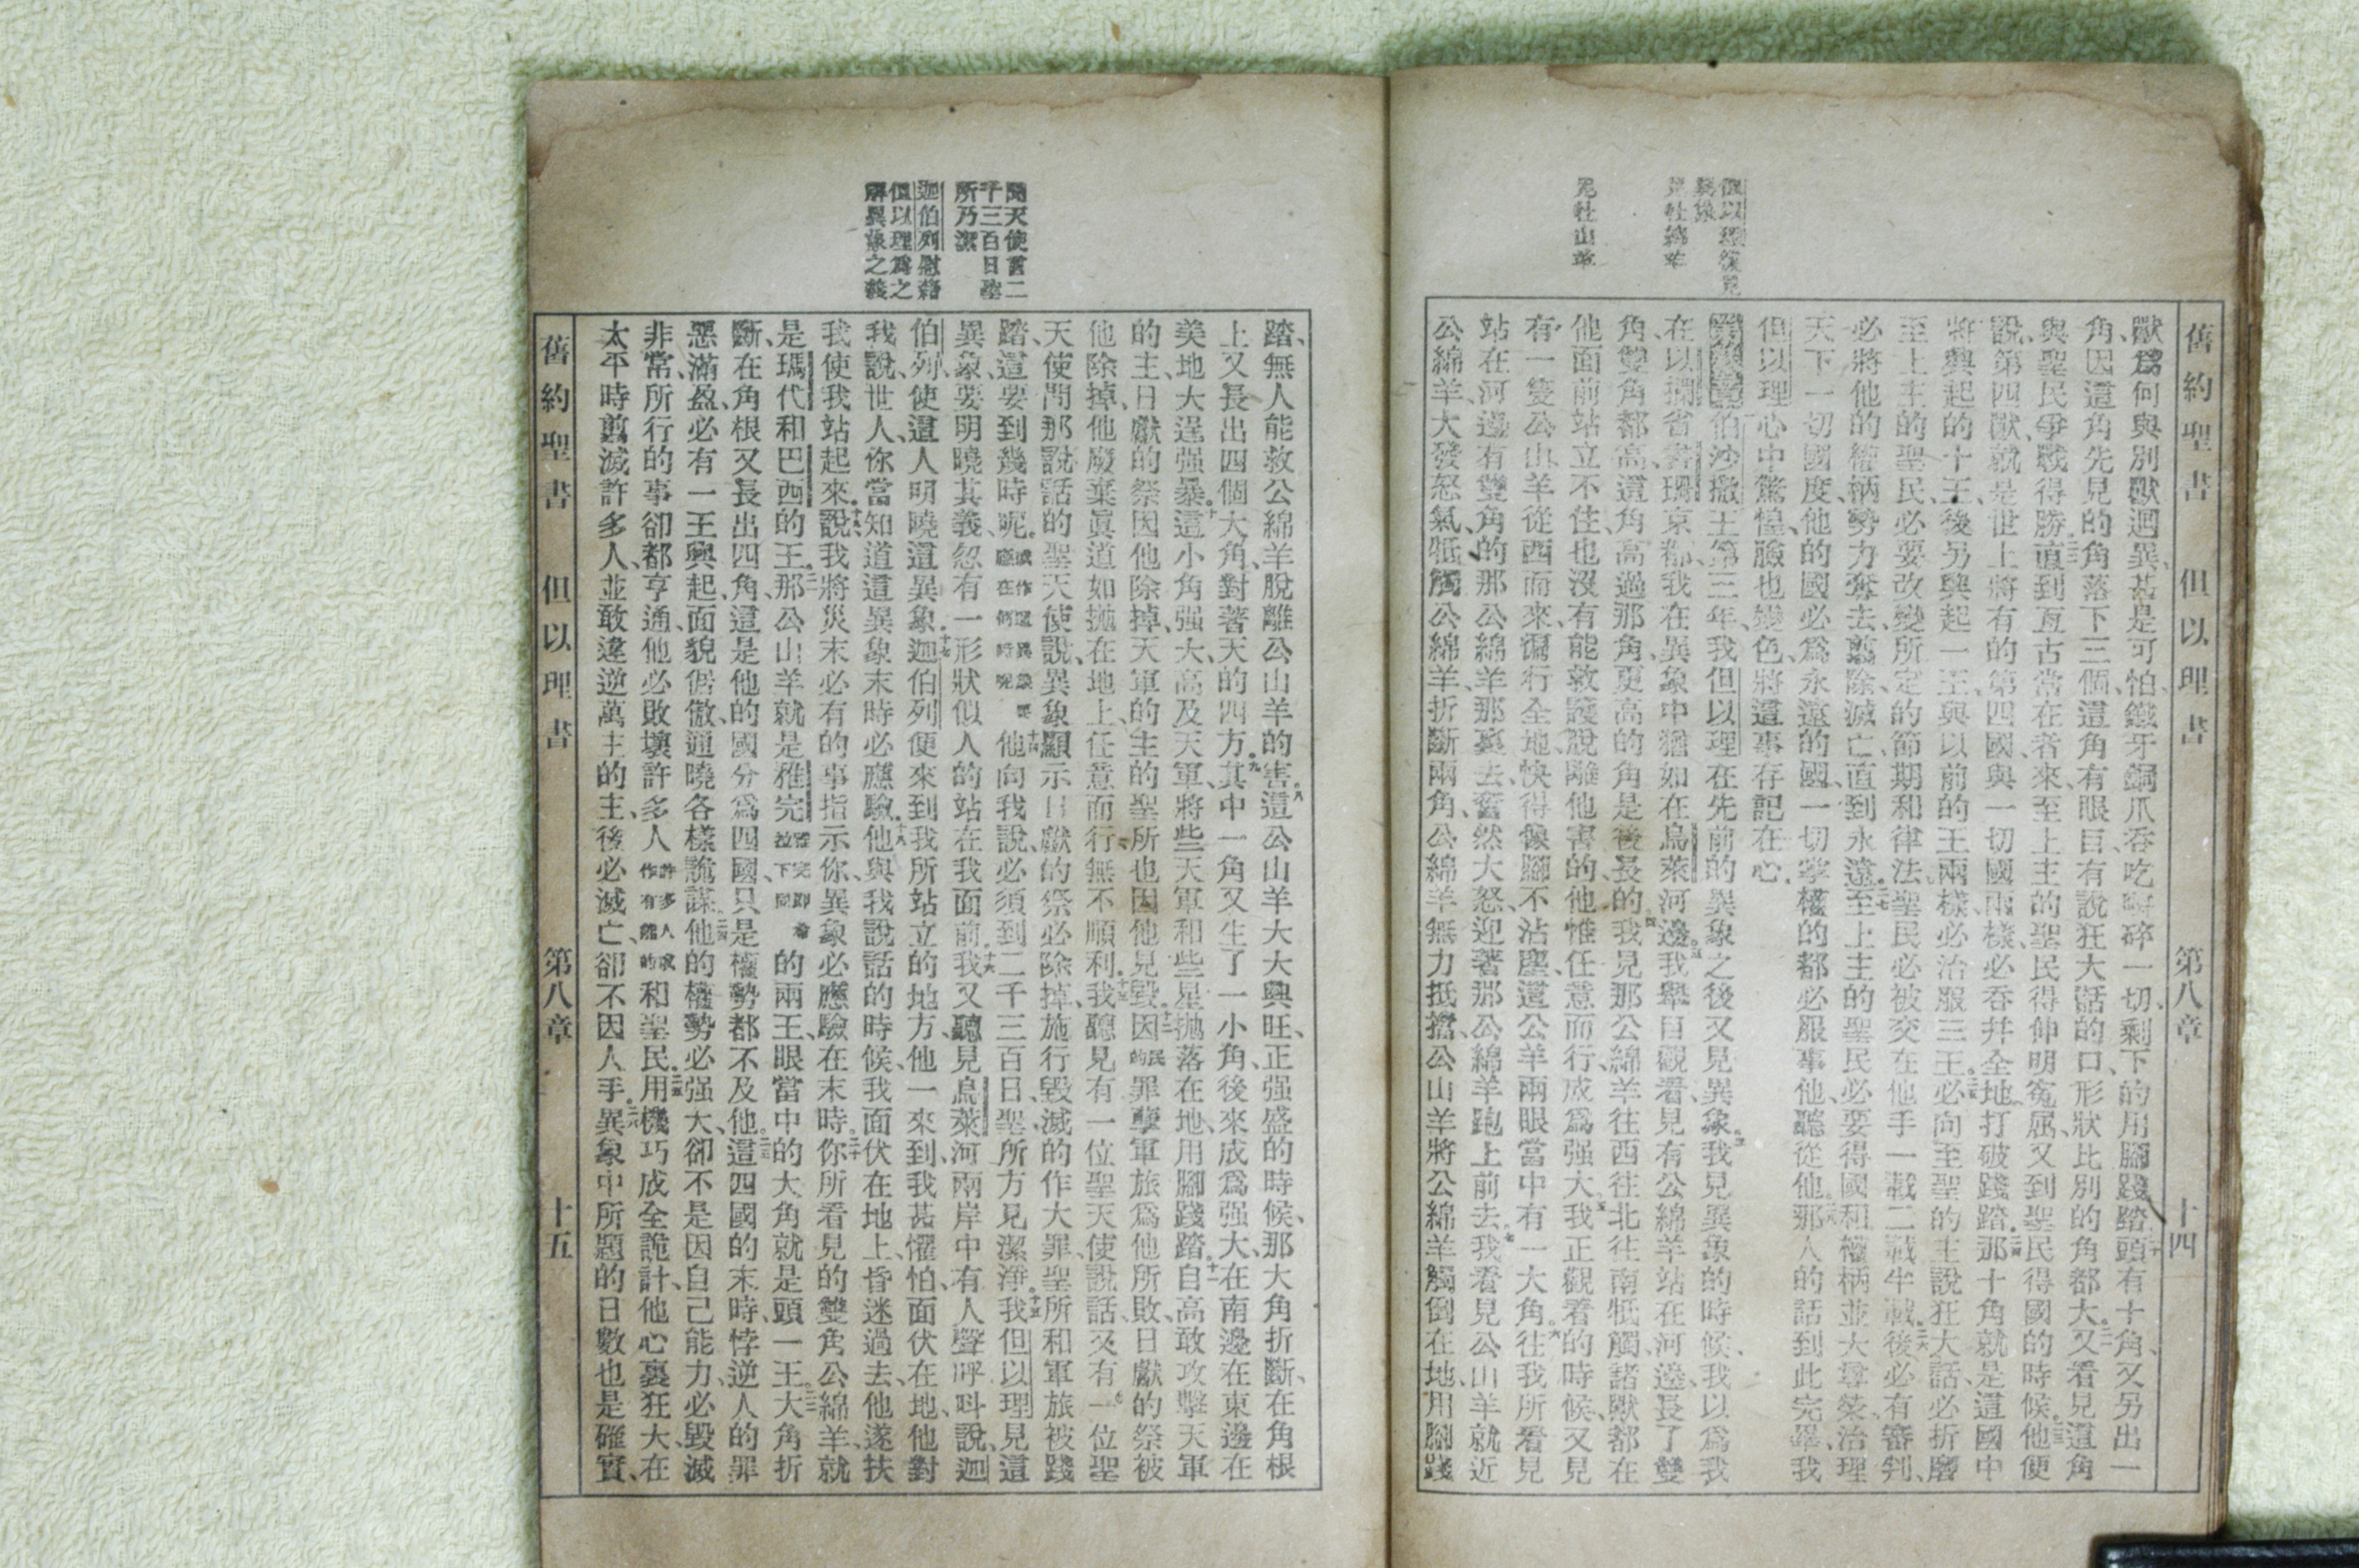 舊約聖書 但以理書 第八章 十四
獸爲何與別獸迥異、甚是可怕、鐵牙銅爪、吞吃嚼碎一切、剩下的用腳踐踏、頭有十角、又另出一
角、因這角先見的角落下三個、這角有眼目、有說狂大話的口、形狀比別的角都大。又看見這角
與聖民爭戰得勝。直到亙古常在者來、至上主的聖民得伸明冤屈、又到聖民得國的時候。他便
說、第四獸、就是世上將有的第四國、與一切國兩樣、必吞幷全地、打破踐踏。那十角就是這國中
將興起的十王、後另興起一王、與以前的王兩樣、必治服三王。必向至聖的主說狂大話、必折磨
至上主的聖民、必要改變所定的節期和律法。聖民必被交在他手一載二載半載。後必有審判、
必將他的權柄勢力奪去、翦除滅亡、直到永遠。至上主的聖民必要得國和權柄並大尊榮、治理
天下一切國度、他的國必爲永遠的國、一切掌權的都必服事他、聽從他。那人的話到此完畢、我
但以理心中驚惶、臉也變色、將這事存記在心。
伯沙撒王第三年、我但以理在先前的異象之後又見異象。我見異象的時候、我以爲我
在以攔省書珊京都、我在異象中猶如在烏萊河邊。我舉目觀看、見有公綿羊站在河邊、長了雙
角、雙角都高、這角高過那角、更高的角是後長的。我見那公綿羊往西往北往南牴觸、諸獸都在
他面前站立不住、也沒有能救護脫離他害的、他惟任意而行、成爲强大。我正觀看的時候、又見
有一隻公山羊從西而來、徧行全地、快得像腳不沾塵、這公羊兩眼當中有一大角。往我所看見
站在河邊有雙角的那公綿羊那裏去、奮然大怒、迎著那公綿羊跑上前去。我看見公山羊就近
公綿羊、大發怒氣、牴觸公綿羊、折斷兩角、公綿羊無力抵擋、公山羊將公綿羊觸倒在地、用腳踐
但以理復見
異象
見牡綿羊
見牡山羊
聞天使言二
千三百日聖
所乃潔
迦伯列慰藉
但以理爲之
解異象之義
踏、無人能救公綿羊脫離公山羊的害。八這公山羊大大興旺、正强盛的時候、那大角折斷、在角根
上又長出四個大角、對著天的四方。九其中一角又生了一小角、後來成爲强大、在南邊在東邊在
美地大逞强暴。十這小角强大、高及天軍、將些天軍和些星拋落在地、用腳踐踏。十一自高敢攻擊天軍
的主、日獻的祭因他除掉、天軍的主的聖所也因他見毀。十二因民的罪孽、軍旅爲他所敗、日獻的祭被
他除掉、他廢棄眞道如拋在地上、任意而行、無不順利。十三我聽見有一位聖天使說話、又有一位聖
天使問那說話的聖天使說、異象顯示日獻的祭必除掉、施行毀滅的作大罪、聖所和軍旅被踐
踏、這要到幾時呢。或作這異象要應在何時呢十四他向我說、必須到二千三百日、聖所方見潔淨。十五我但以理見這
異象、要明曉其義、忽有一形狀似人的站在我面前。十六我又聽見烏萊河兩岸中有人聲呼叫說、迦
伯列、使這人明曉這異象。十七迦伯列便來到我所站立的地方、他一來到、我甚懼怕、面伏在地、他對
我說、世人、你當知道這異象末時必應驗。十八他與我說話的時候、我面伏在地上、昏迷過去、他遂扶
我、使我站起來。十九說、我將災末必有的事指示你、異象必應驗在末時。二十你所看見的雙角公綿羊、就
是瑪代和巴西的王。二一那公山羊就是雅完雅完卽希拉下同的兩王、眼當中的大角就是頭一王。二二大角折
斷、在角根又長出四角、這是他的國分爲四國、只是權勢都不及他。二三這四國的末時、悖逆人的罪
惡滿盈、必有一王興起、面貌倨傲、通曉各樣詭謀。二四他的權勢必强大、卻不是因自己能力、必毀滅
非常、所行的事卻都亨通、他必敗壞許多人許多人或作有能的和聖民。二五用機巧成全詭計、他心裏狂大、在
太平時翦滅許多人、並敢違逆萬主的主、後必滅亡、卻不因人手。二六異象中所題的日數也是確實、
舊約聖書 但以理書 第八章 十五